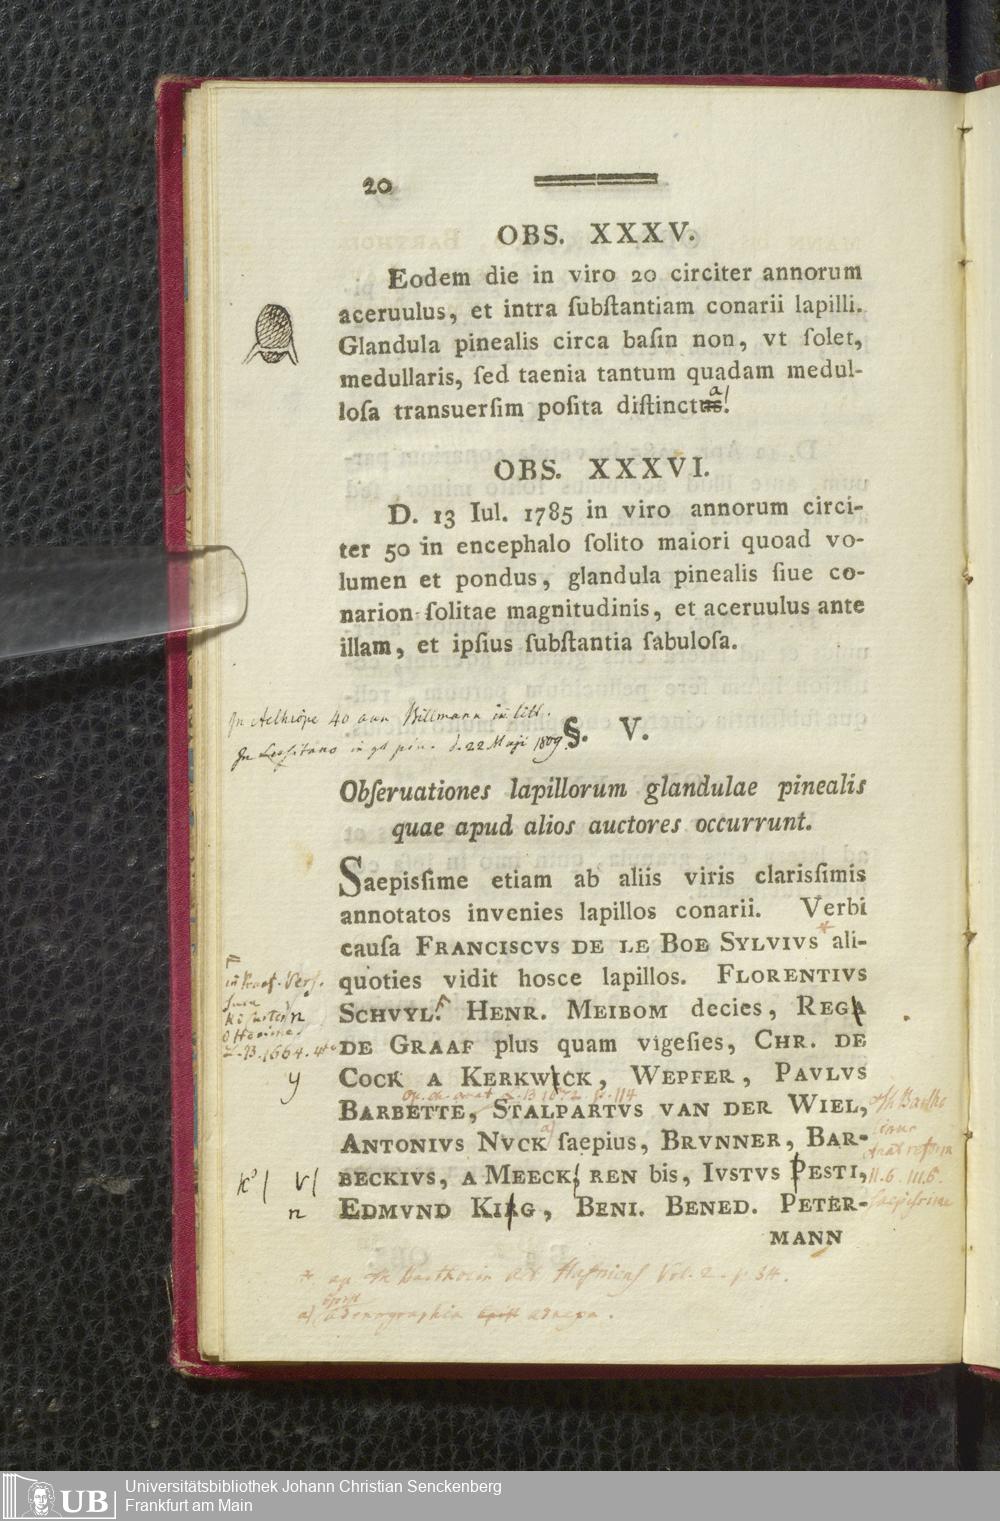 20
OBS. XXXV.
Eodem die in viro 20 circiter annorum
aceruulus, et intra ſubſtantiam conarii lapilli.
Glandula pinealis circa baſin non, vt ſolet,
medullaris, ſed taenia tantum quadam medul-
loſa transuerſim poſita diſtinctus.
a/
OBS. XXXVI.
D. 13 Iul. 1785 in viro annorum circi-
ter 50 in encephalo ſolito maiori quoad vo-
lumen et pondus, glandula pinealis ſiue co-
narion ſolitae magnitudinis, et aceruulus ante
illam, et ipſius ſubſtantia ſabuloſa.
In Aethiope 40 ann Billmann in litt.
In Lusitano in gl pin. d. 22 Maji 1809.
§. V.
Obſeruationes lapillorum glandulae pinealis
quae apud alios auctores occurrunt.
Saepissime etiam ab aliis viris clarissimis
annotatos invenies lapillos conarii. Verbi
cauſa FRANCISCVS DE LE BOE SYLVIVS * ali-
quoties vidit hosce lapillos. FLORENTIVS
SCHVYL. HENR. MEIBOM decies, REGA
n
DE GRAAF plus quam vigeſies, CHR. DE
1664.
COCK A KERKWICK, WEPFER, PAVLVS
y
1672. p. 114
BARBETTE, STALPARTVS VAN DER WIEL,
ANTONIVS NVCK a) ſaepius, BRVNNER, BAR-
Anat reform
BECKIVS, A MEECK REN bis, IVSTVS PESTI,
II.6. III.6.
EDMVND KIRG, BENI. BENED. PETER-
n
Saepissime
MANN
* ap Th Bartholin Act Hafniens Vol. 2. p 34.
a) Adenographia
Universitätsbibliothek Johann Christian Senckenberg
UB Frankfurt am Main